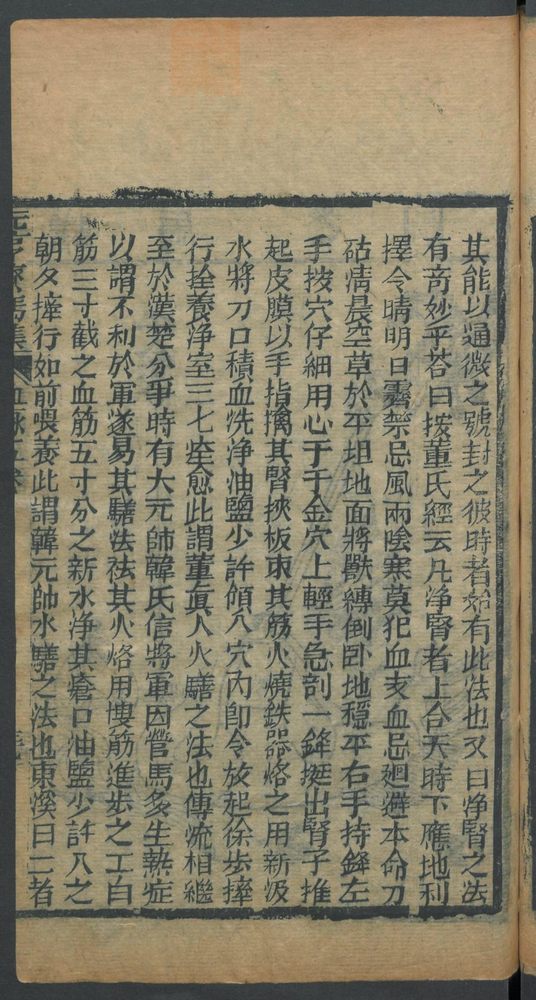 其能以通微之號封之彼時者始有此法也又曰淨腎之法
有奇妙乎荅曰按董氏經云凡淨腎者上合天時下應地利
擇令晴明日霽禁忌風雨陰寒莫犯血支血忌廻避本命刀
砧清晨空草於平坦地面將獸縛倒卧地穩平右手持鋒左
手按穴仔細用心于千金穴上輕手急剖一鋒挺出腎子推
起皮膜以手指擒其腎挾板朿其筋火燒鉄器烙之用新汲
水將刀口積血洗淨油鹽少許傾八穴內卽令放起徐步撁
行拴養淨室三七痊愈此謂董眞人火騸之法也傳流相繼
至於漢楚分爭時有大元帥韓氏信將軍因營馬多生熱症
以謂不利於軍遂易其騸法袪其火烙用摟筋進步之工白
筋三寸截之血筋五寸分之新水淨其瘡口油鹽少許入之
朝夕撁行如前喂養此謂韓元帥水騸之法也東溪曰二者
元亨療馬集 五卷